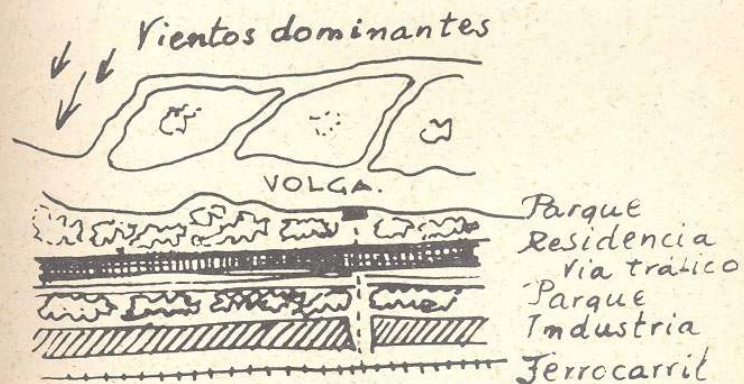 Vientos dominantes
VOLGA.
Parque
Residencia
Via tráfico
Parque
Industria
Ferrocarril